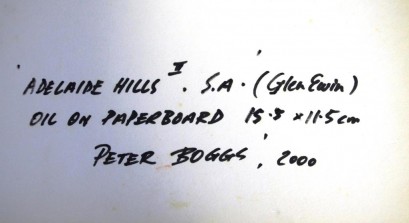 'ADELAIDE HILLS II. S.A. (Glen Ewin)'
OIL ON PAPERBOARD 15.8 x 11.5 cm
PETER BOGGS, 2000